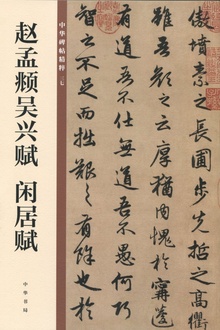 赵孟頫吴兴赋 闲居赋
中华碑帖精粹
中华书局
傲墳素之長圃步先哲之高衢
雖吾顔之云厚猶内愧於甯蘧
有道吾不仕無道吾不愚何巧
智之不足而拙艱之有餘也於